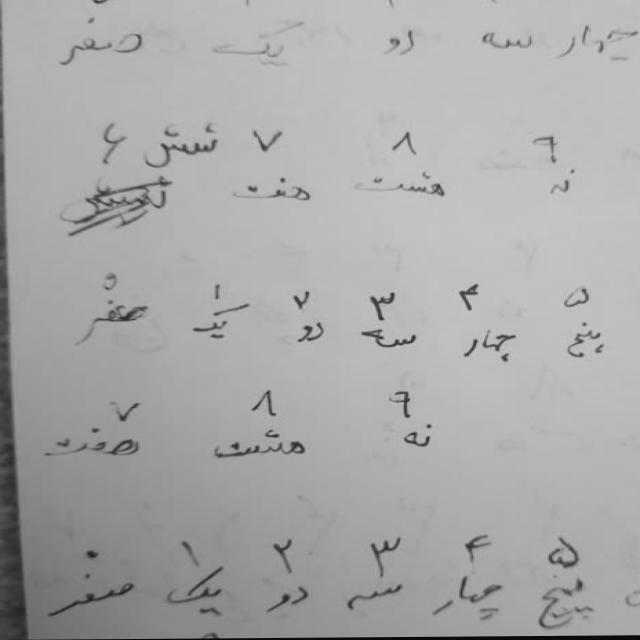 چهار سه دو یک صفر
۹ ۸ ۷ شش ۶
نه هشت هفت
۵ ۴ ۳ ۲ ۱ ۰
پنج چهار سه دو یک صفر
۹ ۸ ۷
نه هشت هفت
۵ ۴ ۳ ۲ ۱ ۰
پنج چهار سه دو یک صفر